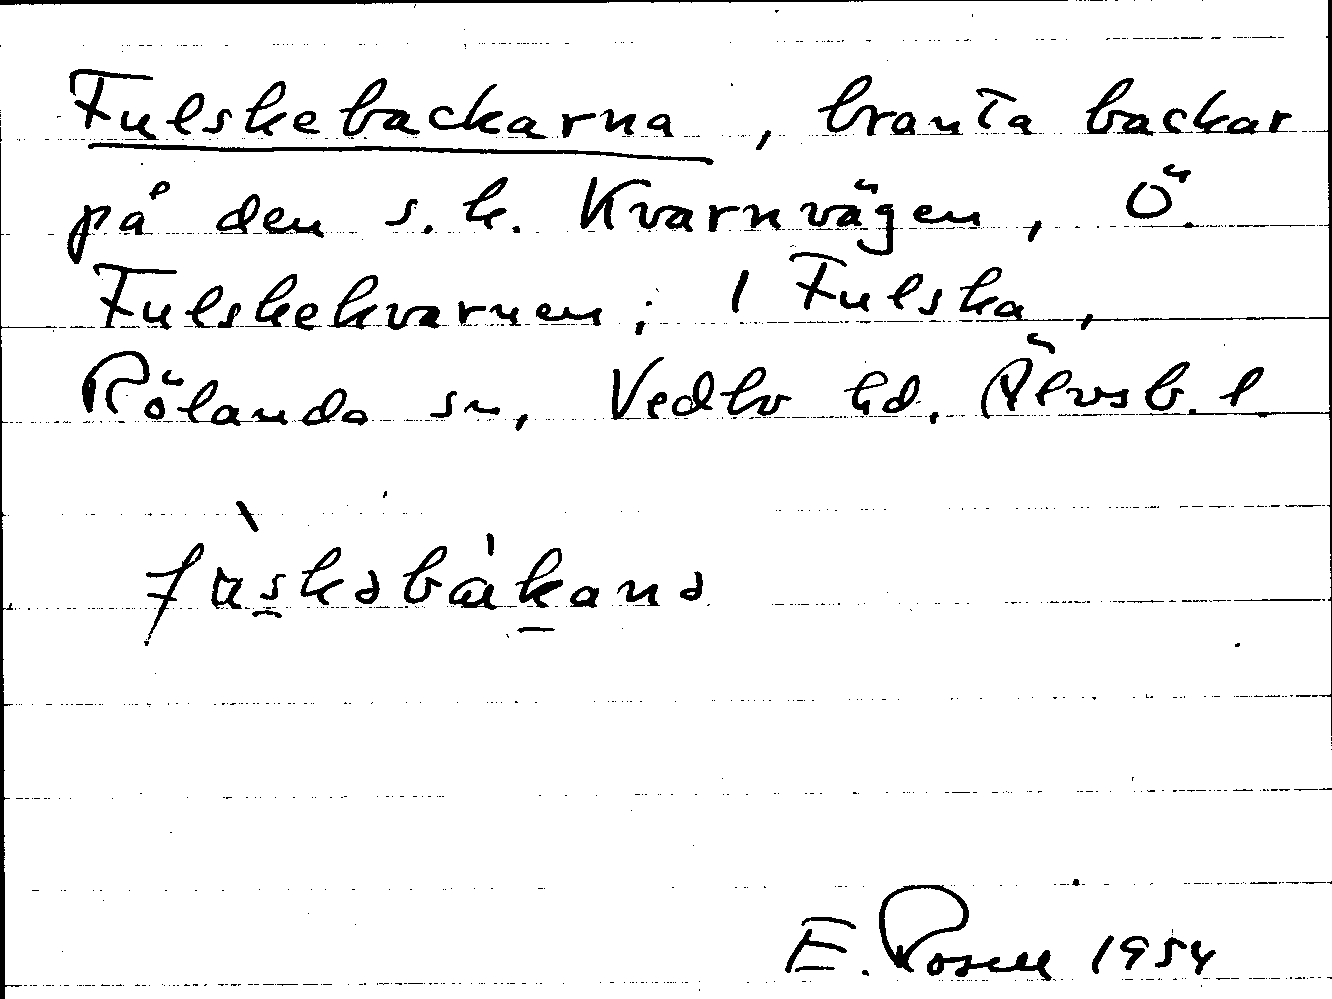 Fulskebackarna, branta backar
på den s. k. Kvarnvägen, Ö.
Fulskekvarnen; 1 Fulska,
Rölanda sn, Vedbo hd. Älvsb. l.
E. Rosell 1954